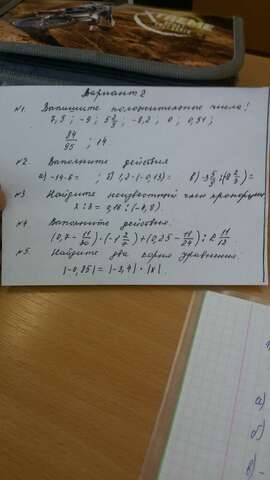 Вариант 2
№1. Запишите положительные числа:
7,5 ; -9 ; 5 2/3 ; -8,2 ; 0 ; 0,51 ;
84/95 ; 14
№2 Выполните действия
а) -14·5= ; б) 1,2·(-0,13)= в)
№3 Найдите неизвестный член пропорции
x:2=0,18:(-4,8).
№4 Выполните действия:
(0,7 - 11/20)·(-1 2/7)+(0,25 - 11/24):2 11/13
№5. Найдите два корня уравнения:
|-0,85|=|-3,4|·|x|.
а)
б)
в)